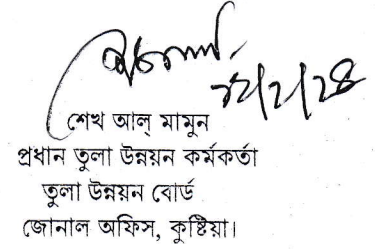 শেখ আল্ মামুন
প্রধান তুলা উন্নয়ন কর্মকর্তা
তুলা উন্নয়ন বোর্ড
জোনাল অফিস, কুষ্টিয়া।